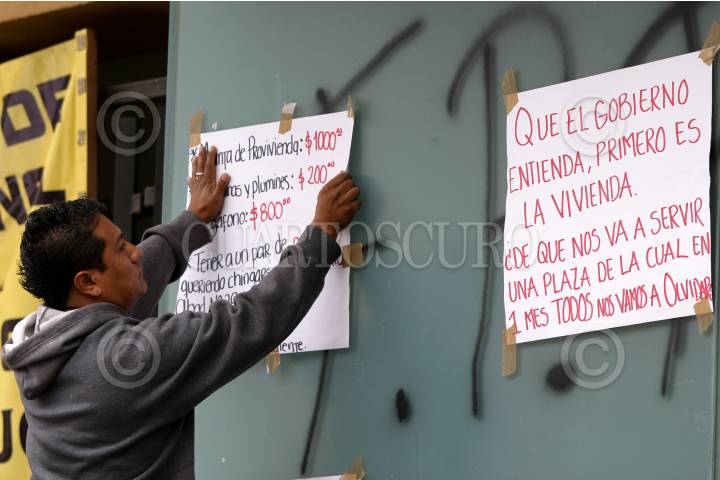 DE
NE
* Manta de Provivienda: $1000.00
as y plumines: $200.00
éfono: $800.00
Tener a un par de
queriendo chingar
QUE EL GOBIERNO
ENTIENDA, PRIMERO ES
LA VIVIENDA.
¿DE QUE NOS VA A SERVIR
UNA PLAZA DE LA CUAL EN
1 MES TODOS NOS VAMOS A OLVIDAR
CUARTOSCURO